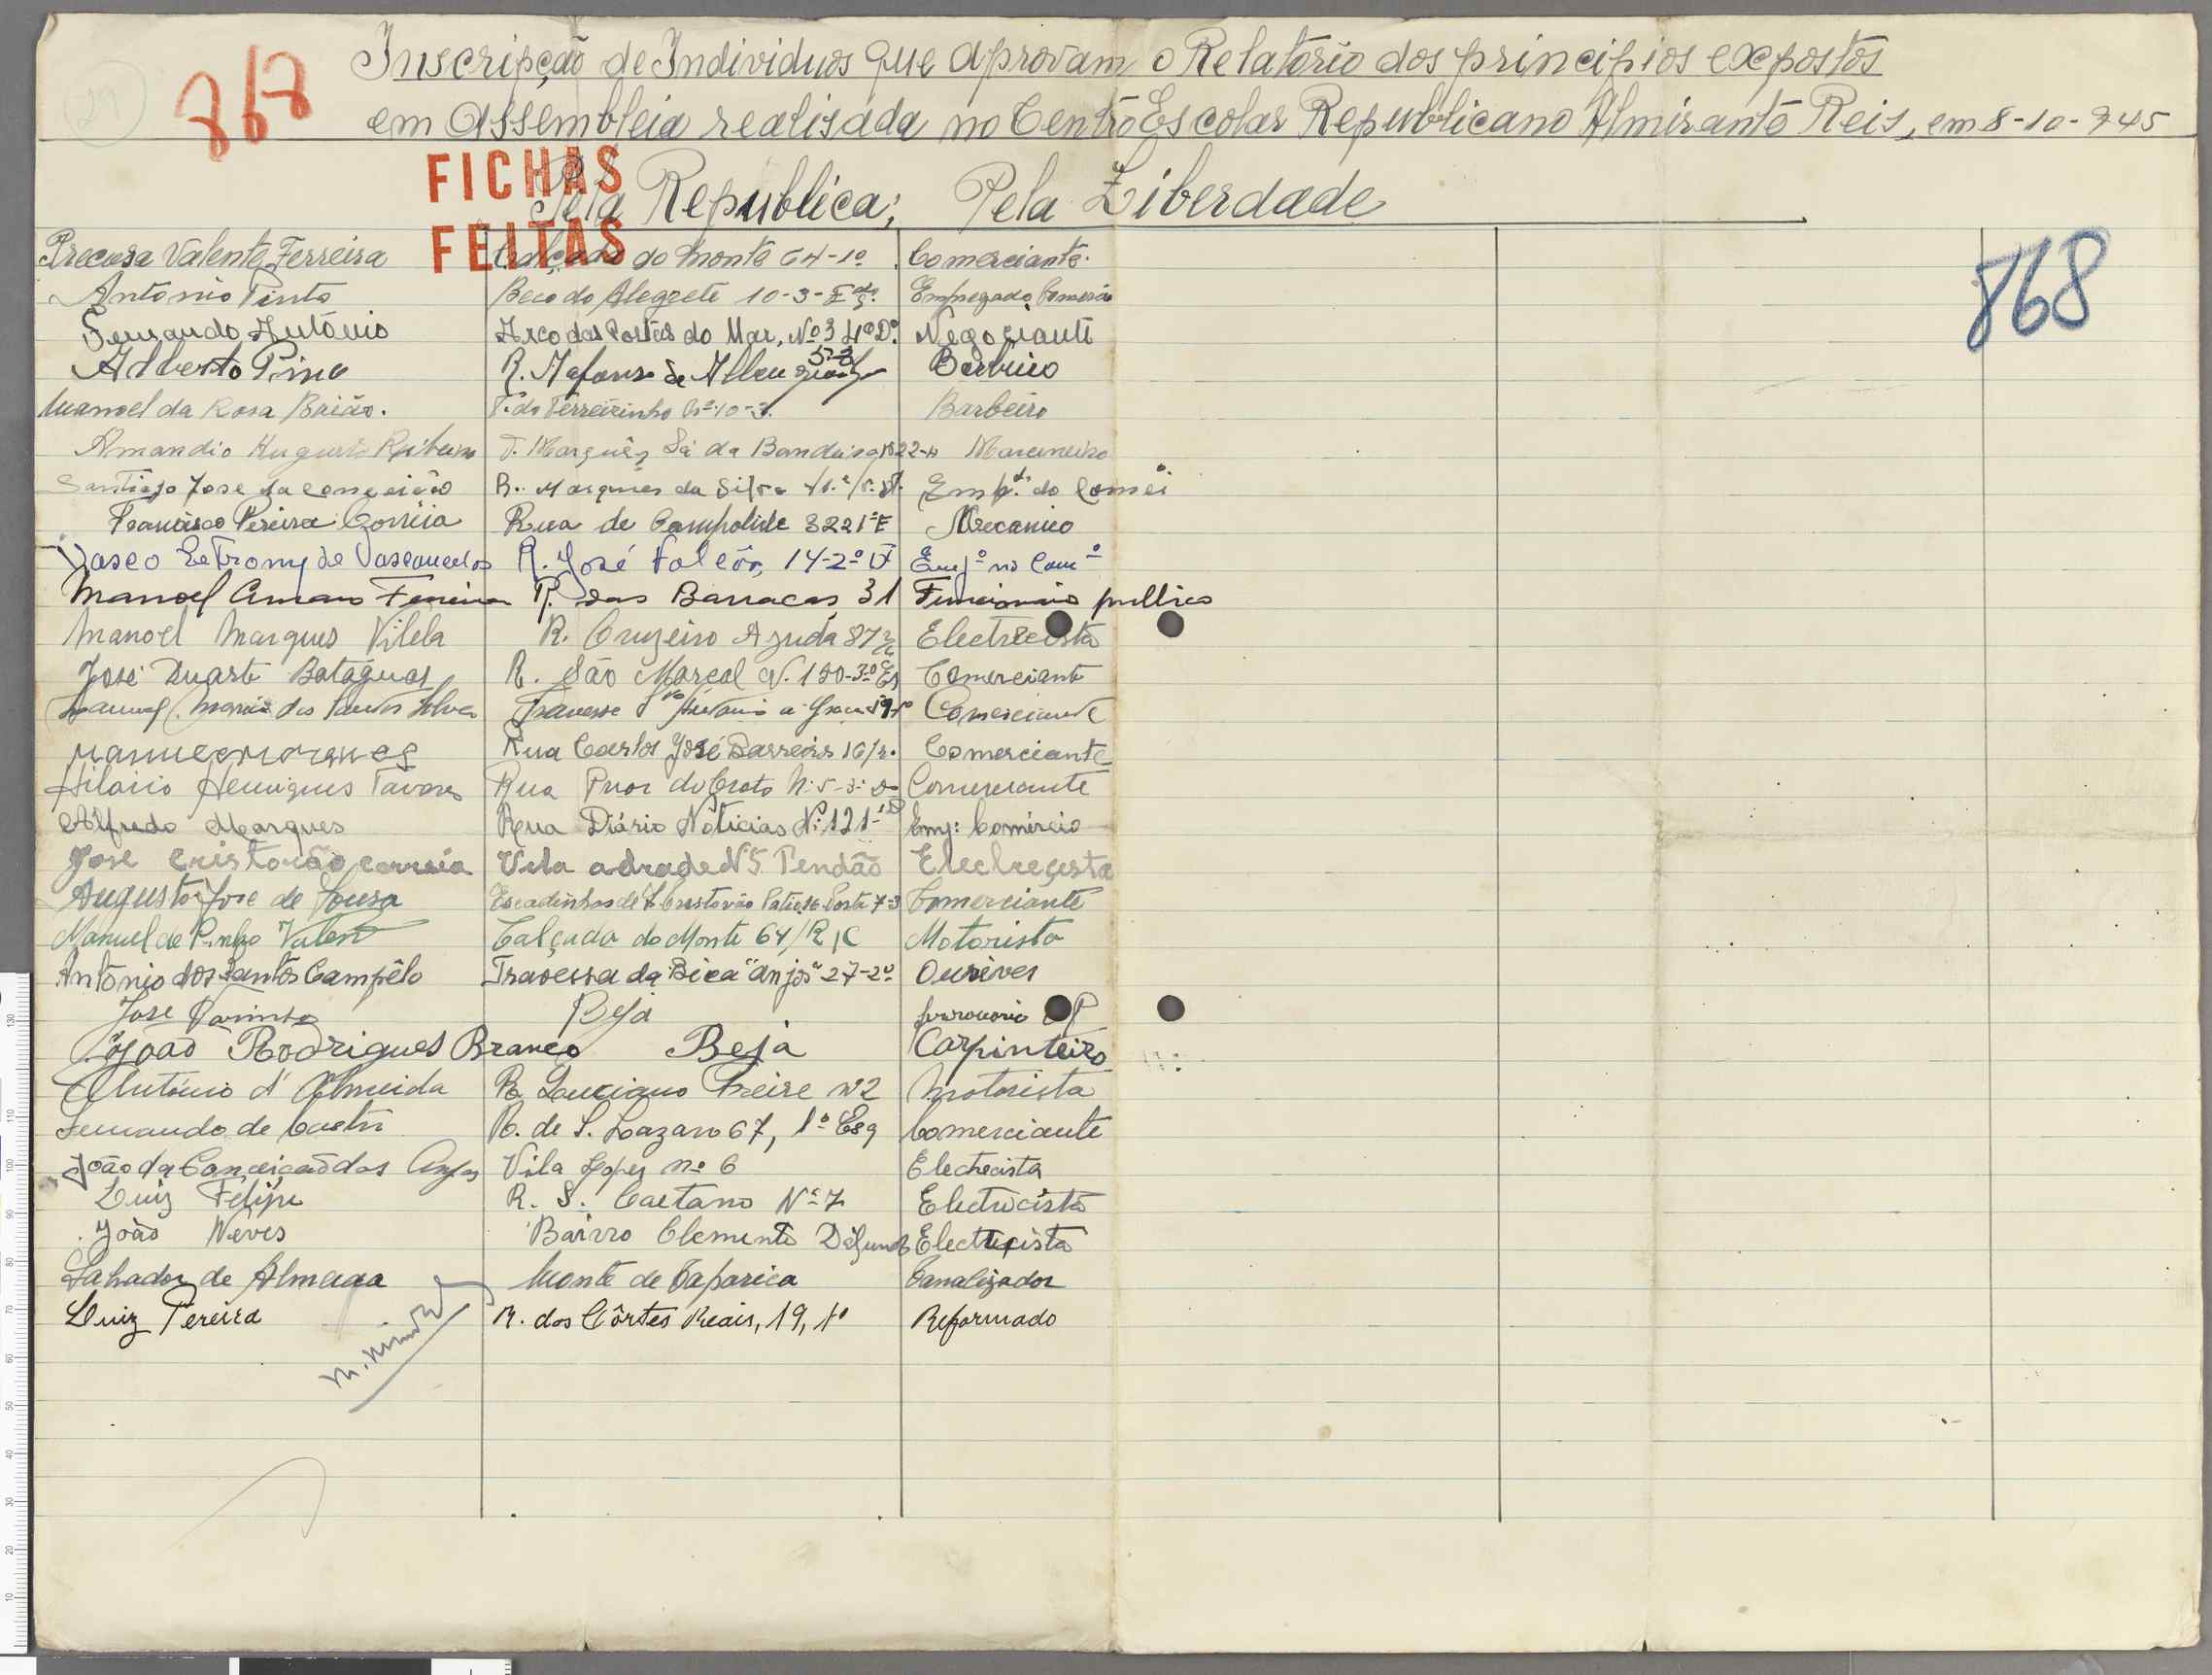 27
868
Inscripção de Individuos que aprovam o Relatório dos principios expostos
em Assembleia realisada no Centro Escolar Republicano Almirante Reis, em 8-10-945
FICHAS
Pela Republica; Pela Liberdade
FEITAS
868
Valente Ferreira Calçada do Monte 64-1º Comerciante
Antonio Pinto Beco do Alegrete 10-3- Empregado Comercio
Fernando António Arco das Portas do Mar, Nº3 4º Dº. Negociante
Alberto Pina R. Afonso de Albuquerque 53 Barbeiro
Manoel da Rosa Baião. T. do Terreirinho Nº 10-3. Barbeiro
Armandio Augusto Ribeiro T. Marquês Sá da Bandeira 22-A Marceneiro
Santiago Jose da Conceição R. Marques da Silva Emp.do do Comei
Francisco Pereira Correia Rua de Campolide Mecanico
Vasco de Vasconcelos R. José Falcão, 14-2º D Empº no Comº
Manoel Amaro Ferreira R. das Barracas 31 Funcionario publico
Manoel Marques Vilela R. Cruzeiro Ajuda 87 Electrecista
José Duarte Batáguas R. São Marçal N. 180-3º Es Comerciante
Manuel Maria dos Santos Silva Travessa Comerciante
Rua Carlos José Barreiros 16/r. Comerciante
Hilario Henriques Tavares Rua Prior do Crato N: 5-3: D Comerciante
Alfredo Marques Rua Diário Noticias Nº 121-1º Emp: Comércio
José Cristovão correia Vila adrade Nº5 Pendão Electreçista
Augusto Jose de Sousa Escadinhas de S. Cristovão Patio 16 Porta 7-3 Comerciante
Manuel de Pinho Valente Calçada do Monte 64/R/C Motorista
António dos Santos Campêlo Travessa da Bica "Anjos" 27-2º Ourives
Jose Beja
João Rodrigues Branco Beja Carpinteiro
António d'Almeida R. Luciano Freire nº2 Motorista
Fernando de Castro R. de S. Lazaro 67, 1º Esq Comerciante
João da Conçeição dos Anjos Vila Lopes nº 6 Electrecista
Luiz Felipe R. S. Caetano Nº 7 Electrecista
João Neves Bairro Clemente Electrecista
Salvador de Almada Monte de Caparica Canalizador
Luiz Pereira R. dos Côrtes Reais, 19, 1º Reformado